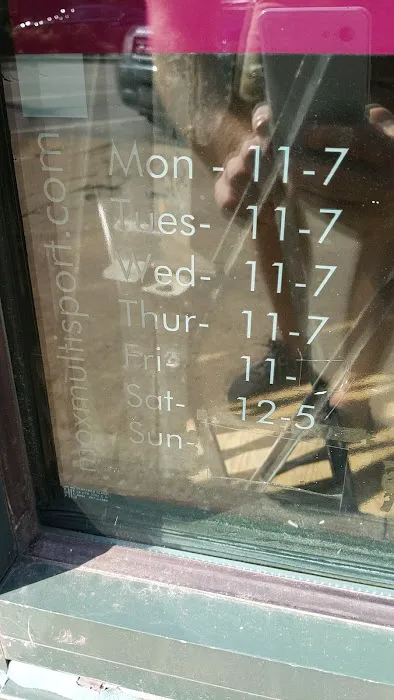 Mon - 11-7
Tues- 11-7
Wed- 11-7
Thur- 11-7
Fri- 11-
Sat- 12-5
Sun-
maxmultisport.com